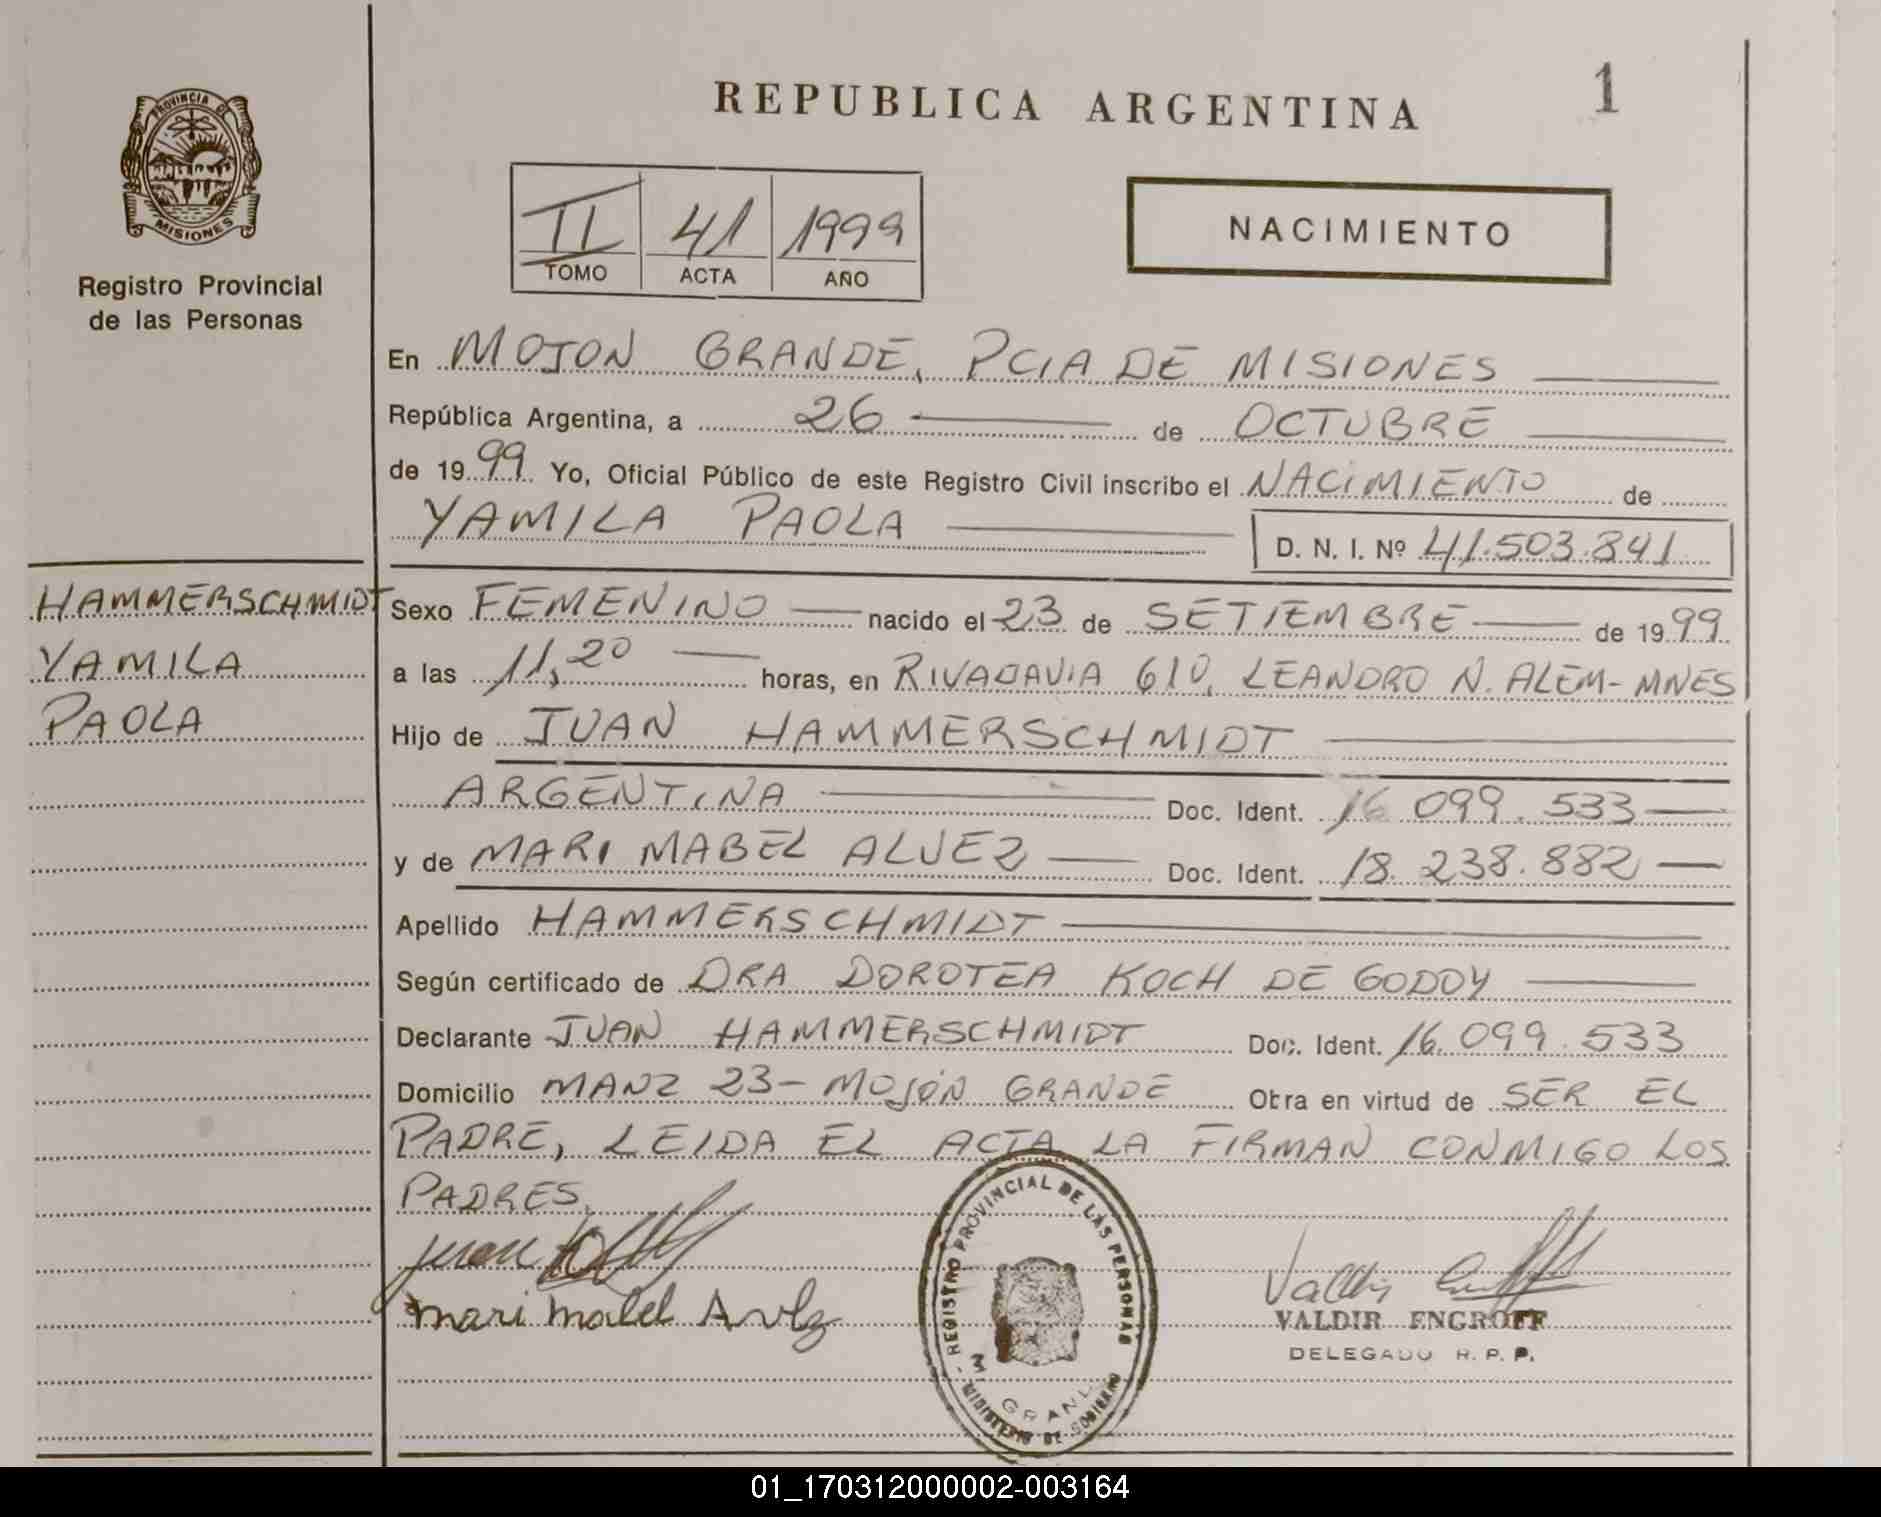 REPUBLICA ARGENTINA
1
PROVINCIA DE
MISIONES
Registro Provincial
de las Personas
II 41 1999
TOMO ACTA AÑO
NACIMIENTO
En MOJON GRANDE, PCIA DE MISIONES
República Argentina, a 26 de OCTUBRE
de 1999 Yo, Oficial Público de este Registro Civil inscribo el NACIMIENTO de
YAMILA PAOLA D. N. I. Nº 41.503.841
HAMMERSCHMIDT
YAMILA
PAOLA
Sexo FEMENINO nacido el 23 de SETIEMBRE de 1999
a las 11,20 horas, en RIVADAVIA 610, LEANDRO N. ALEM- MNES
Hijo de JUAN HAMMERSCHMIDT
ARGENTINA Doc. Ident. 16 099. 533
y de MARI MABEL ALVEZ Doc. Ident. 18. 238. 882
Apellido HAMMERSCHMIDT
Según certificado de DRA DOROTEA KOCH DE GODOY
Declarante JUAN HAMMERSCHMIDT Doc. Ident. 16. 099. 533
Domicilio MANZ 23- MOJÓN GRANDE Obra en virtud de SER EL
PADRE, LEIDA EL ACTA LA FIRMAN CONMIGO LOS
PADRES.
juan
mari mabel
REGISTRO PROVINCIAL DE LAS PERSONAS
MINISTERIO DE GOBIERNO
Valdir
VALDIR ENGROFF
DELEGADO R. P. P.
01_170312000002-003164